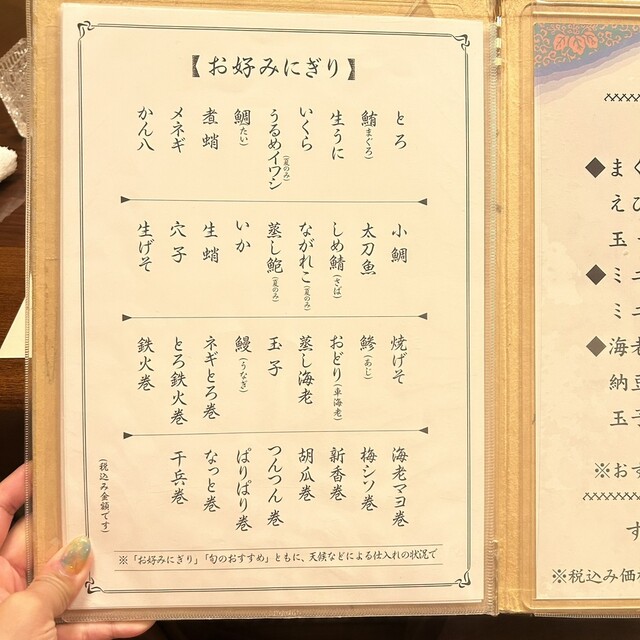 【お好みにぎり】
とろ
鮪(まぐろ)
生うに
いくら
うるめイワシ(夏のみ)
鯛(たい)
煮蛸
メネギ
かん八
小鯛
太刀魚
しめ鯖(さば)
ながれこ(夏のみ)
蒸し鮑(夏のみ)
いか
生蛸
穴子
生げそ
焼げそ
鯵(あじ)
おどり(車海老)
蒸し海老
玉子
鰻(うなぎ)
ネギとろ巻
とろ鉄火巻
鉄火巻
海老マヨ巻
梅シソ巻
新香巻
胡瓜巻
つんつん巻
ぱりぱり巻
なっと巻
干兵巻
(税込み金額です)
※「お好みにぎり」「旬のおすすめ」ともに、天候などによる仕入れの状況で
◆まぐ
えび
玉
◆ミニ
ミニ
◆海老
納豆
玉子
※おす
す
※税込み価